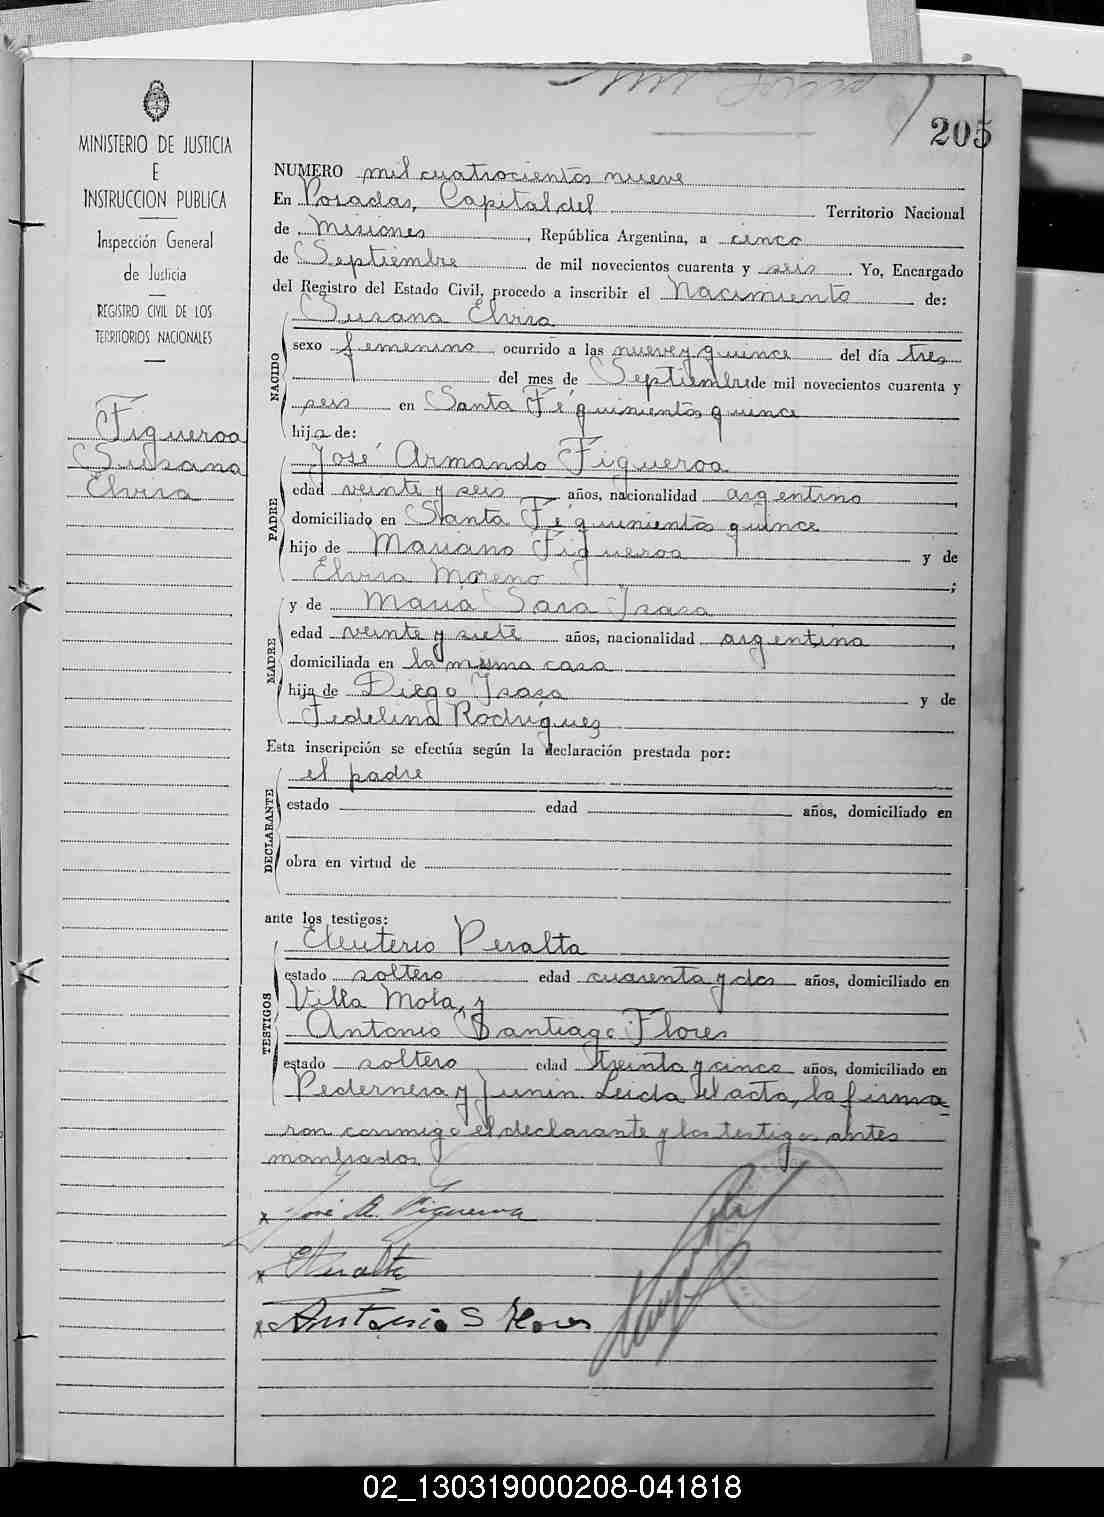 205
MINISTERIO DE JUSTICIA
E
INSTRUCCION PUBLICA
Inspección General
de Justicia
REGISTRO CIVIL DE LOS
TERRITORIOS NACIONALES
Figueroa
Susana
Elvira
NUMERO mil cuatrocientos nueve
En Posadas, Capital del Territorio Nacional
de Misiones, República Argentina, a cinco
de Septiembre de mil novecientos cuarenta y seis. Yo, Encargado
del Registro del Estado Civil, procedo a inscribir el Nacimiento de:
NACIDO
Susana Elvira
sexo femenino ocurrido a las nueve y quince del día tres
del mes de Septiembre de mil novecientos cuarenta y
seis en Santa Fé quinientos quince
hija de:
PADRE
José Armando Figueroa
edad veinte y seis años, nacionalidad argentino
domiciliado en Santa Fé quinientos quince
hijo de Mariano Figueroa y de
Elvira Moreno;
MADRE
y de María Sara Isasa
edad veinte y siete años, nacionalidad argentina,
domiciliada en la misma casa
hija de Diego Isasa y de
Fedelina Rodríguez
Esta inscripción se efectúa según la declaración prestada por:
DECLARANTE
el padre
estado edad años, domiciliado en
obra en virtud de
ante los testigos:
TESTIGOS
Eleuterio Peralta
estado soltero edad cuarenta y dos años, domiciliado en
Villa Mota, y
Antonio Santiago Flores
estado soltero edad treinta y cinco años, domiciliado en
Pedernera y Junin. Leida el acta, la firma
ron conmigo el declarante y los testigos antes
mantrados
José A. Figueroa
E Peralta
Antonio S Flores
02_130319000208-041818